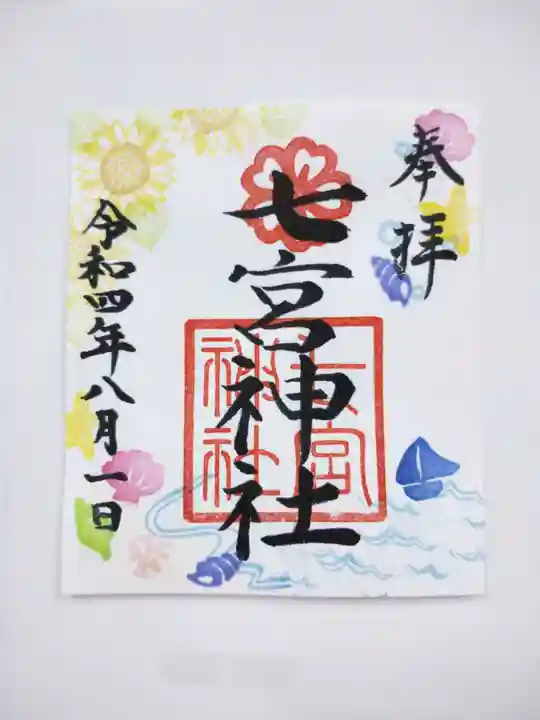 奉拝
七宮神社
七宮
神社
令和四年八月一日